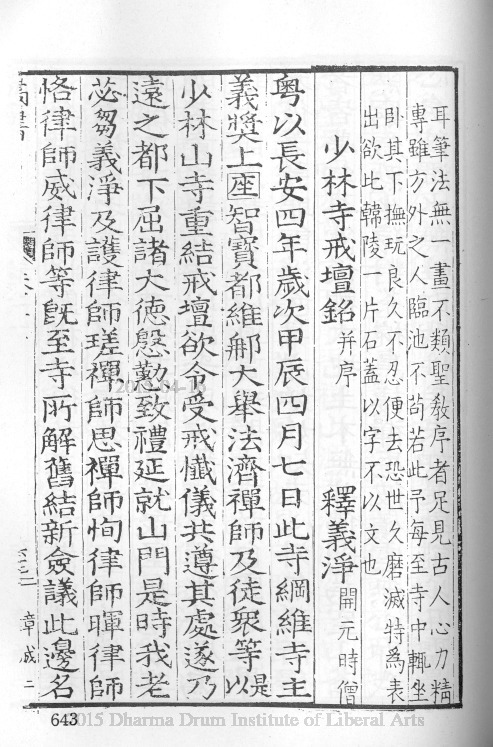 耳筆法無一畫不類聖教序者足見古人心力精
專雖方外之人臨池不苟若此予每至寺中輒坐
卧其下撫玩良久不忍便去恐世久磨滅特爲表
出欲比韓陵一片石蓋以字不以文也
少林寺戒壇銘 并序 釋義淨 開元時僧
粤以長安四年歲次甲辰四月七日此寺綱維寺主
義獎上座智寶都維那大舉法濟禪師及徒衆等以是
少林山寺重結戒壇欲令受戒懺儀共遵其處遂乃
遠之都下屈諸大德慇懃致禮延就山門是時我老
苾芻義淨及護律師瑳禪師思禪師恂律師暉律師
恪律師威律師等旣至寺所解舊結新僉議此邊名
章成
643
2015 Dharma Drum Institute of Liberal Arts